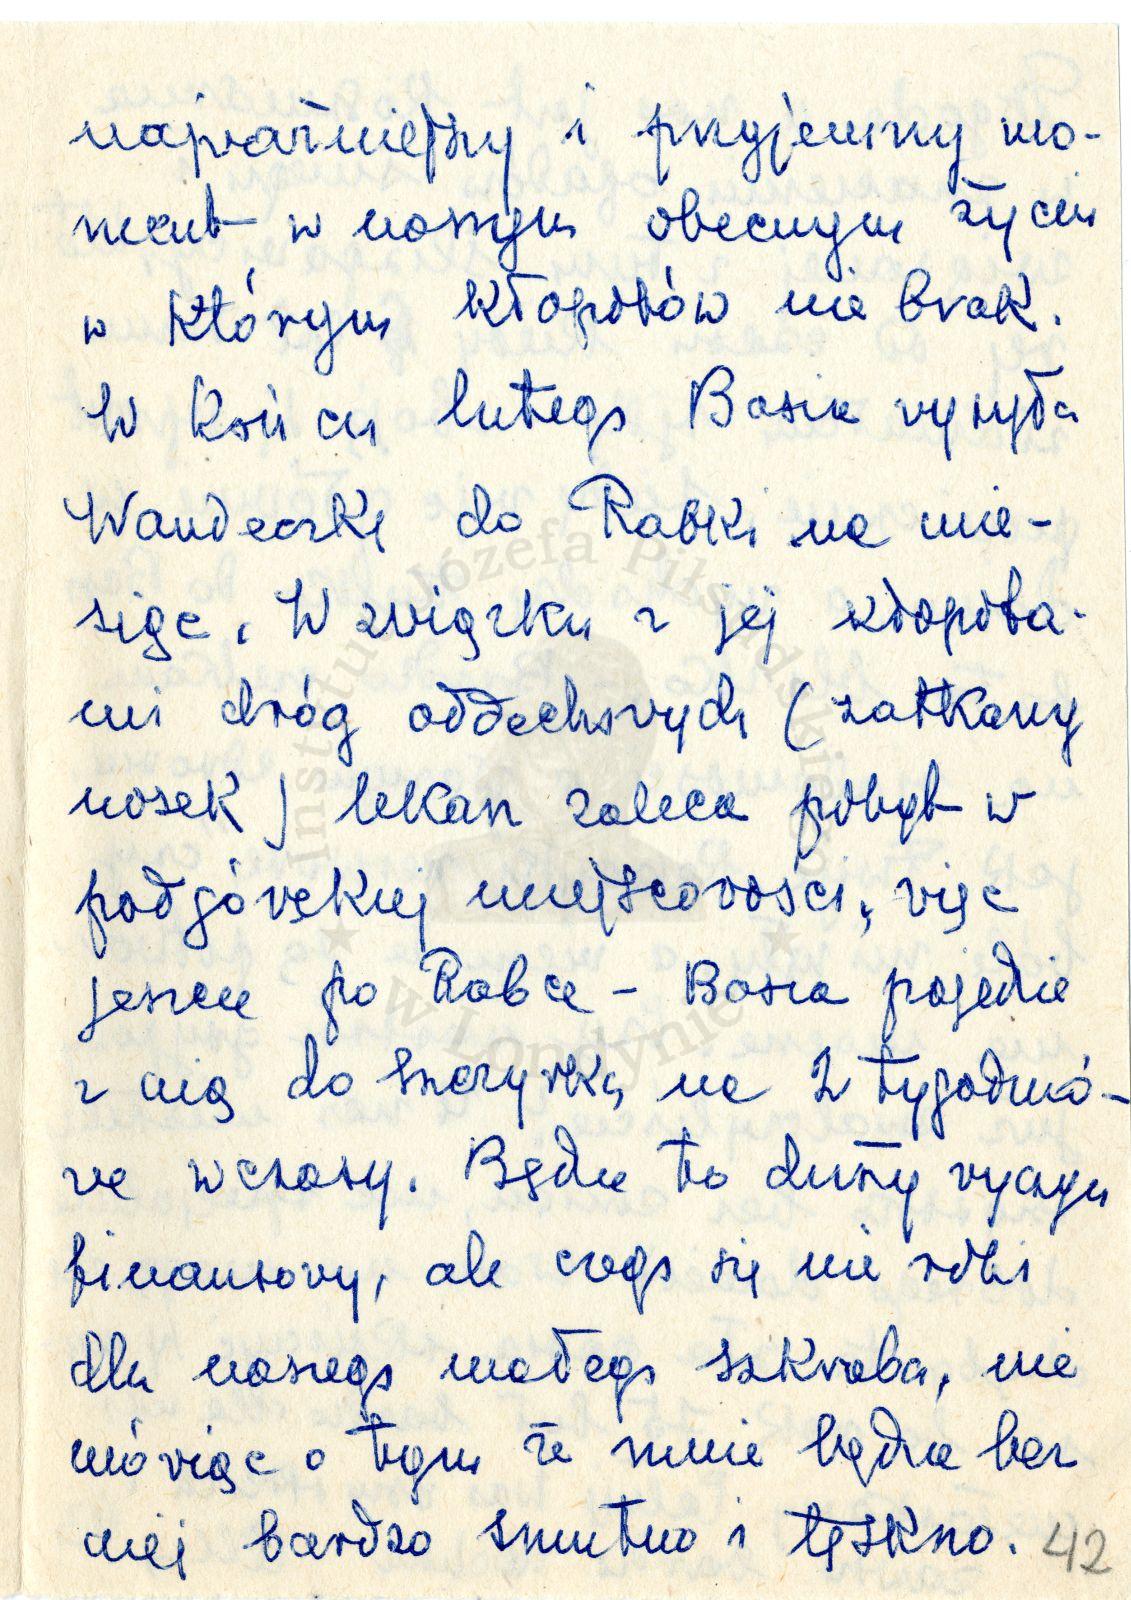 najważniejszy i przyjemny mo-
ment w naszym obecnym życiu
w którym kłopotów nie brak.
W końcu lutego Basia wysyła
Wandeczkę do Rabki na mie-
siąc. W związku z jej kłopota-
mi dróg oddechowych (zatkany
nosek) lekarz zaleca pobyt w
podgórskiej miejscowości, więc
jeszcze po Rabce - Basia pojedzie
z nią do Szczyrku na 2 tygodnio-
we wczasy. Będzie to duży wyczyn
finansowy, ale czego się nie robi
dla naszego małego szkraba, nie
mówiąc o tym że mnie będzie bez
niej bardzo smutno i tęskno.
42
Instytut Józefa Piłsudskiego
w Londynie